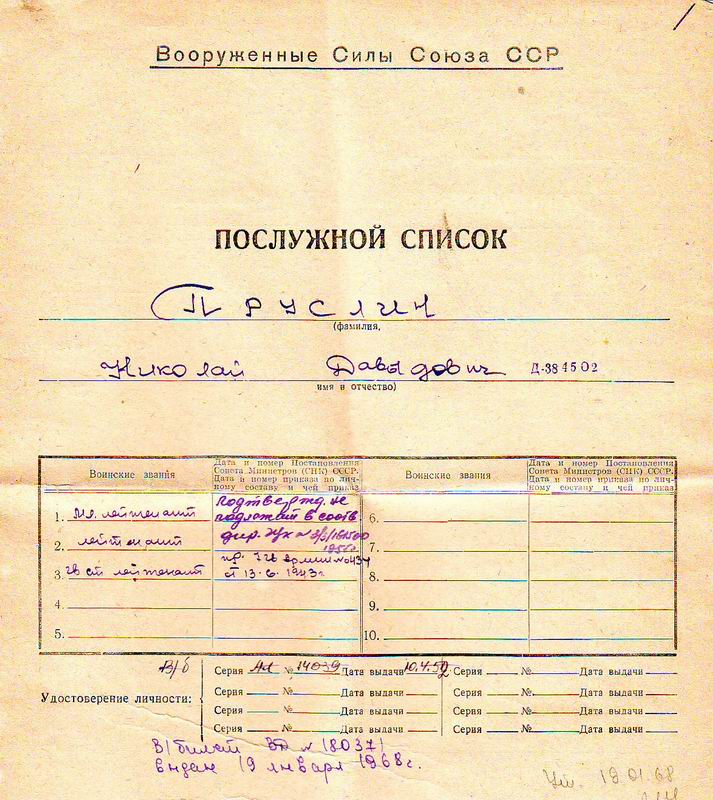 Вооруженные Силы Союза ССР
ПОСЛУЖНОЙ СПИСОК
Пруслин
(фамилия,
Николай Давыдович Д-384502
имя и отчество)
Воинские звания
Дата и номер Постановления
Совета Министров (СНК) СССР.
Дата и номер приказа по лич-
ному составу и чей приказ
Воинские звания
Дата и номер Постановления
Совета Министров (СНК) СССР.
Дата и номер приказа по лич-
ному составу и чей приказ
1. Мл. лейтенант
подтвержд. не
подлежит в соотв.
6.
2. лейтенант
дир. УК
7.
3. гв ст лейтенант
армии №
от 13.6.1943г.
8.
4.
9.
5.
10.
В/б
Удостоверение личности:
Серия АЛ № 14039 Дата выдачи 10.4.52 Серия № Дата выдачи
Серия № Дата выдачи Серия № Дата выдачи
Серия № Дата выдачи Серия № Дата выдачи
Серия № Дата выдачи Серия № Дата выдачи
В/билет № 180371
выдан 19 января 1968г.
19.01.68